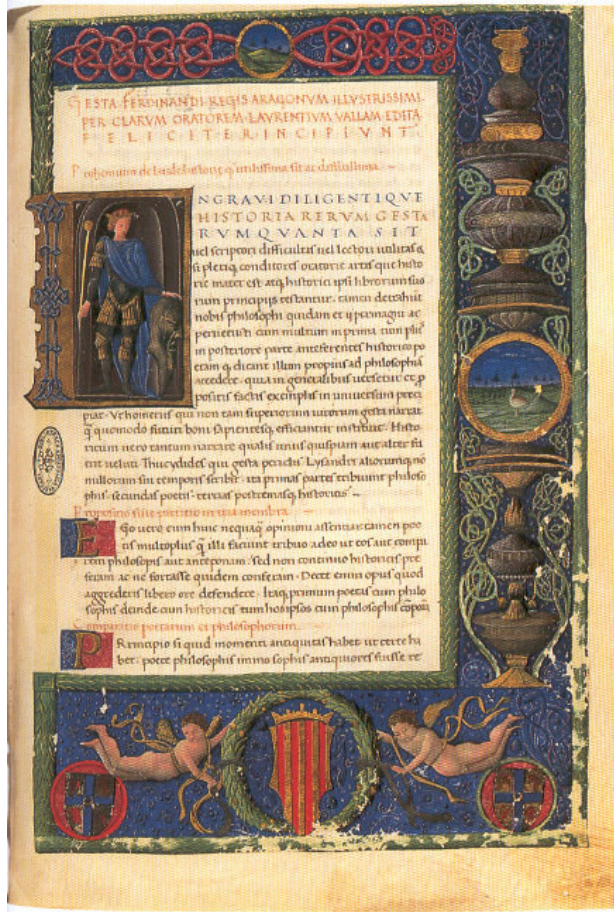 GESTA FERDINANDI REGIS ARAGONVM ILLVSTRISSIMI
PER CLARVM ORATOREM LAVRENTIVM VALLAM EDITA
FELICITER INCIPIVNT
Prohemium de laude historie q utilissima sit ac difficillima
INGRAVI DILIGENTIQVE
HISTORIA RERVM GESTA
RVM QVANTA SIT
uel scriptori difficultas uel lectori utilitas &
si pleriq conditores oratorie artis que histo
rie mater est atq historici ipsi librorum suo
rum principijs testantur. tamen detrahūt
nobis philosophi quidam et ij permagni ac
peruetusti cum multum in prima tum plꝰ
in posteriore parte anteferentes historico po
etam q dicant illum propius ad philosophiā
accedere. quia in generalibus uersetur et ꝓ
positis fictis exemplis in uniuersum preci
piat. Vt homerus qui non tam superiorum uirorum gesta narrat
q̄ quomodo futuri boni sapientesq efficiantur instituit. Histo
ricum uero tantum narrare qualis unus quispiam aut alter fu
erit ueluti Thucydides qui gesta periclis Lysandri aliorumq nō
nullorum sui temporis scribit. ita primas partes tribuunt philoso
phis. secundas poetis. tertias postremasq historicis
Propositio siue partitio in tria membra
Ego uero cum hunc nequaq opinioni assentiar. tamen poe
tis multoplus q̄ illi faciunt tribuo adeo ut eos aut compa
rem philosopis aut anteponam. sed non continuo historicis pre
feram ac ne fortasse quidem conferam. Decet enim opus quod
aggrederis libero ore defendere. Itaq primum poetas cum philo
sophis deinde cum historicis tum hos ipsos cum philosophis
Comparatio poetarum et philosophorum
PRincipio si quid momenti antiquitas habet ut certe ha
bet. poete philosophis immo sophis antiquiores fuisse re